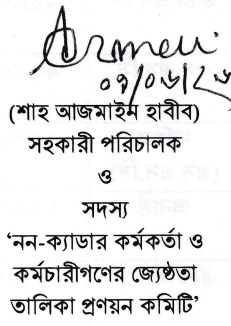 (শাহ আজমাইম হাবীব)
সহকারী পরিচালক
ও
সদস্য
‘নন-ক্যাডার কর্মকর্তা ও
কর্মচারীগণের জ্যেষ্ঠতা
তালিকা প্রণয়ন কমিটি’